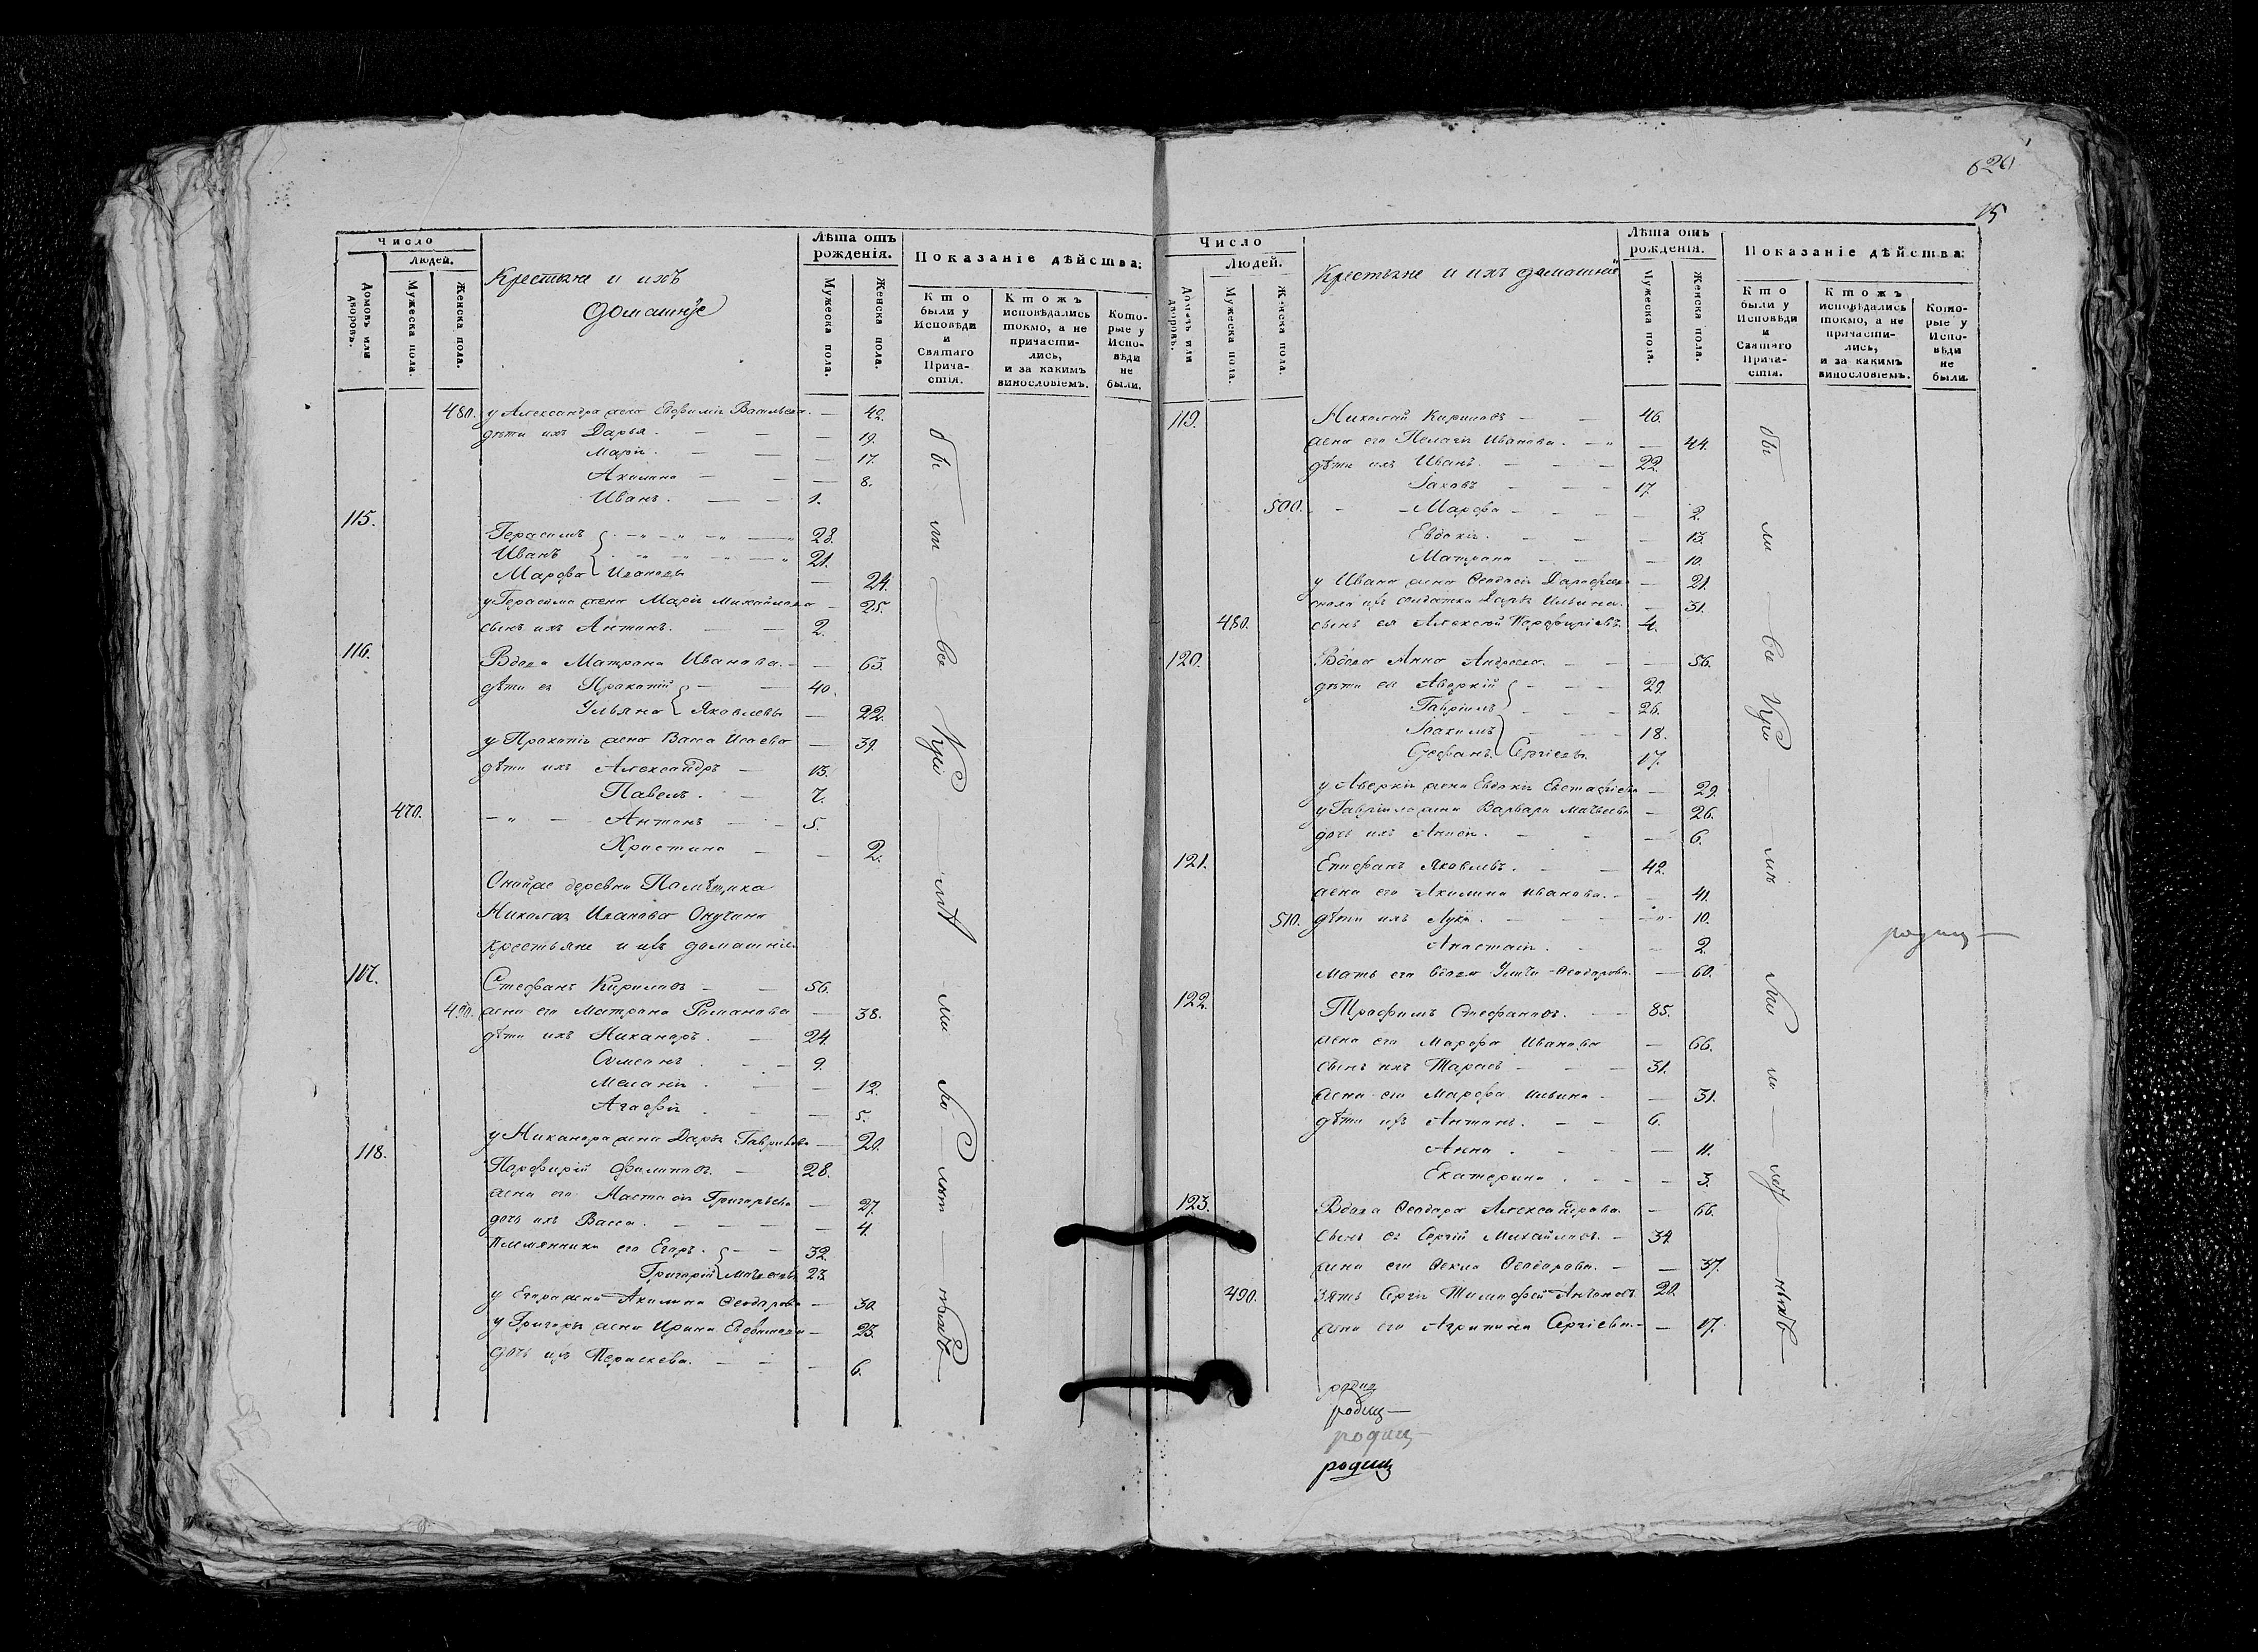 Число
Людей.
Домовъ или дворовъ.
Мужеска пола.
Женска пола.
Крестьяне и ихъ
домашніе
Лѣта отъ рожденія.
Мужеска пола.
Женска пола.
Показаніе дѣйства:
Кто были у Исповѣди и Святаго Прича-стія.
Ктожъ исповѣдались токмо, а не причасти-лись, и за какимъ винословіемъ.
Кото-рые у Испо-вѣди не были.
480. у Александра жена Евфимія Васильева. — 42.
дѣти ихъ Дарья. — 19.
Марія. — 17.
Акилина — 8.
Иванъ. — 1.
115.
Герасимъ 28.
Иванъ 21.
Марфа Ивановы — 24.
у Герасима жена Марія Михайлова — 25.
сынъ ихъ Антонъ. — 2.
116. Вдова Матрона Иванова. — 63.
дѣти ея Прокопій — 40.
Ульяна Яковлевы — 22.
у Прокопія жена Васса Исаева — 39.
дѣти ихъ Александръ — 13.
Павелъ. — 7.
470. Антонъ — 5.
Христина — 2.
Онойже деревни Помѣщика
Николая Иванова Онучина
крестьяне и ихъ домашніе
117. Стефанъ Кириловъ — 56.
490. жена его Матрона Романова — 38.
дѣти ихъ Никаноръ. — 24.
Сѵмеонъ. — 9.
Меланія. — 12.
Агафія. — 5.
у Никанора жена Дарья Гаврилова — 20.
118. Парфирій Филиповъ. — 28.
жена его Настасія Григорьева — 27.
дочь ихъ Васса. — 4.
Племянники его Егоръ. — 32.
Григорій Матвеевы 23.
у Егора жена Акилина Феодорова — 30.
у Григорія жена Ирина — 23.
дочь ихъ Параскева. — 6.
620
15
Число
Людей.
Домовъ или дворовъ.
Мужеска пола.
Женска пола.
Крестьяне и ихъ домашніе
Лѣта отъ рожденія.
Мужеска пола.
Женска пола.
Показаніе дѣйства:
Кто были у Исповѣди и Святаго Прича-стія.
Ктожъ исповѣдались токмо, а не причасти-лись, и за какимъ винословіемъ.
Кото-рые у Испо-вѣди не были.
119. Николай Кириловъ — 46.
жена его Пелагія Иванова. — 44.
дѣти ихъ Иванъ. — 22.
Іаковъ — 17.
500. Марфа — 2.
Евдокія. — 13.
Матрона — 10.
у Ивана жена Феодосія — 21.
солдатка Дарья Ильина. — 31.
480. сынъ ея Алексей Парфиріевъ. 4.
120. Вдова Анна Андреева. — 56.
дѣти ея Аверкій — 29.
Гавріилъ — 26.
Іоакимъ — 18.
Стефанъ Сергіевы. 17.
у Аверкія жена Евдокія Евстафіева — 29.
у Гавріила жена Варвара Матвеева — 26.
дочь ихъ — 6.
121. Епифанъ Яковлевъ. — 42.
жена его Акилина Иванова. — 41.
510. дѣти ихъ Лукія. — 10.
Анастасія. — 2.
мать его вдова Феодорова. — 60.
122. Трофимъ Стефановъ. — 85.
жена его Марфа Иванова — 66.
сынъ ихъ Тарасъ — 31.
жена его Марфа Ильина — 31.
дѣти ихъ Антонъ. — 6.
Анна. — 11.
Екатерина. — 3.
123. Вдова Феодора Александрова. — 66.
сынъ ея Сергій Михайловъ. — 34.
жена его Фекла Феодорова. — 37.
490. зять Сергія Тимофей Антоновъ. 20.
жена его Агрипина Сергіева. — 17.
родиц
родиц
родиц
родиц